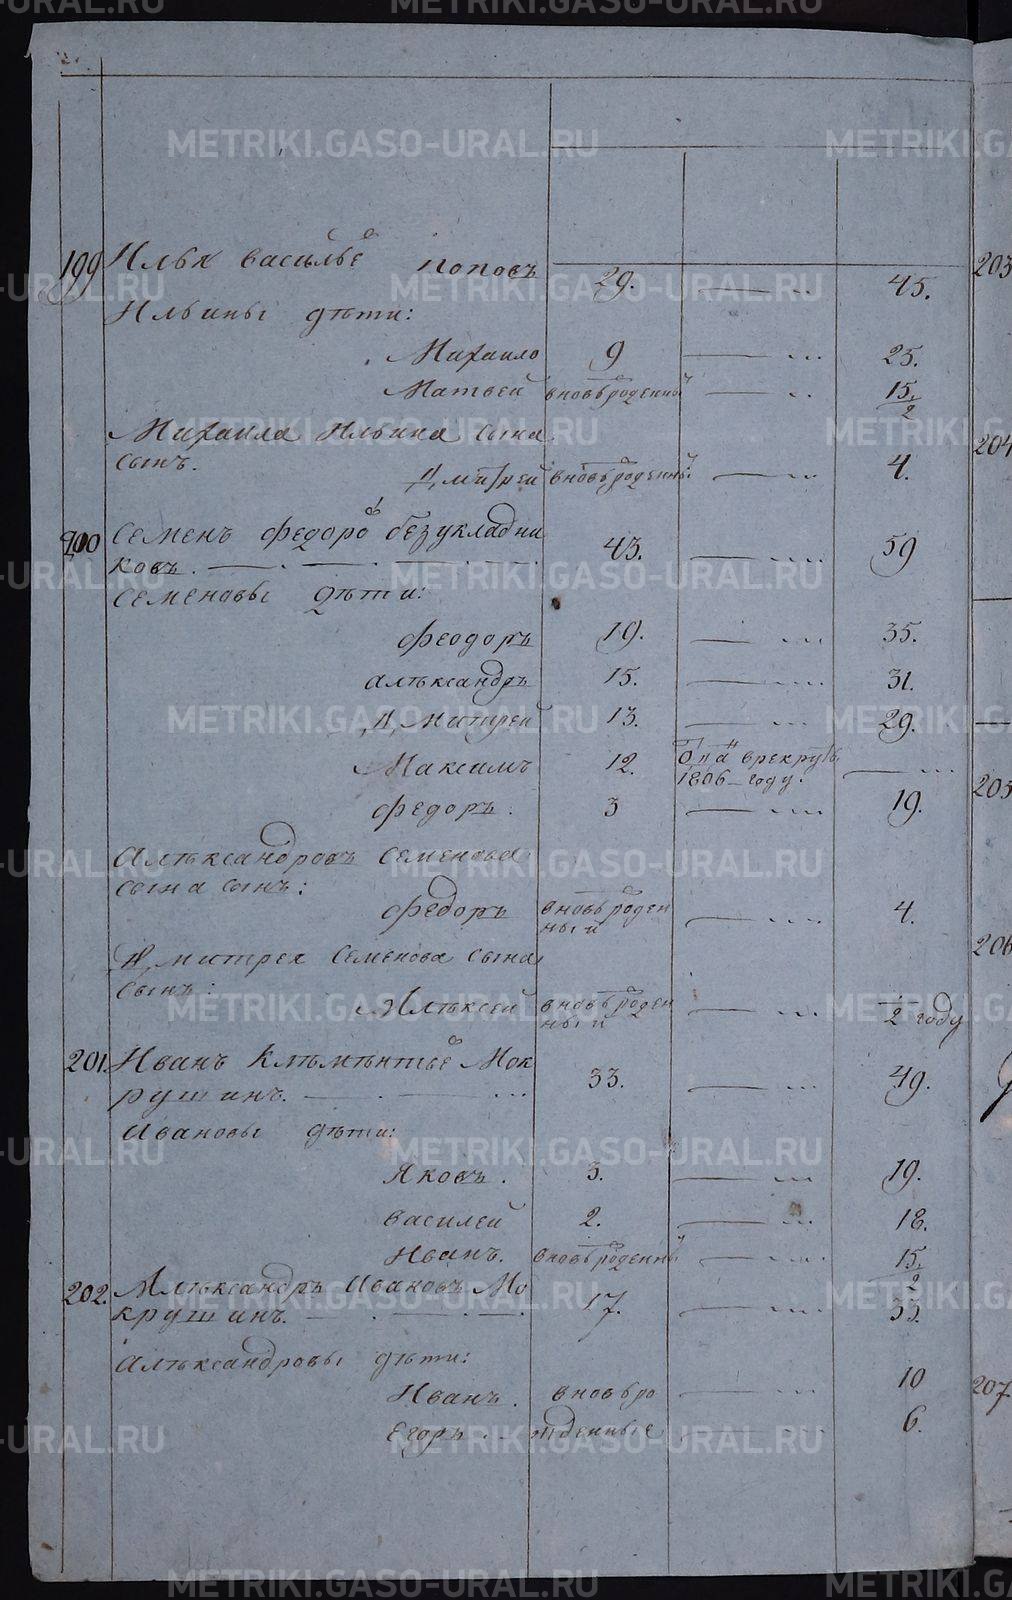 199 Илья Васильев Поповъ 29. 45.
Ильины дѣти:
Михаило 9 25.
Матвей вновьрожденный 15/2
Михаила Ильина сына
сынъ.
Дмитрей вновьрожденный 4.
200 Семенъ Федоров Безукладни
ковъ. 43. 59
Семеновы дѣти:
Феодоръ 19. 35.
Алѣксандръ 15. 31.
Дмитрей 13. 29.
Максимъ 12. Отдан врекруты
1806 году.
Федоръ. 3 19.
Алѣксандровъ Семенова
сына сынъ:
Федоръ вновьрожден
ный 4.
Дмитрея Семенова сына
сынъ:
Алѣксей вновьрожден
ный 1/2 году
201. Иванъ Клѣмѣнтьев Мок
рушинъ. 33. 49.
Ивановы дѣти:
Яковъ. 3. 19.
Василей 2. 18.
Иванъ. вновьрожденный 15/2
202. Алѣксандръ Ивановъ Мо
крушинъ. 17. 33.
Алѣксандровы дѣти:
Иванъ. вновьро 10
Егоръ. жденные 6.
203
204
205
206
207
METRIKI.GASO-URAL.RU